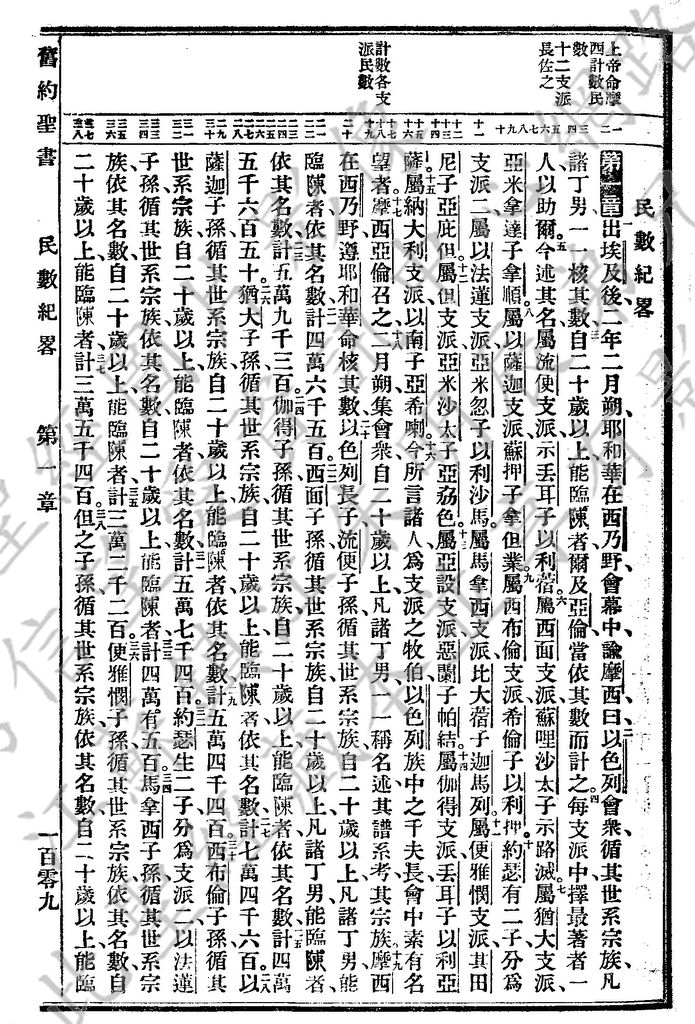 民數紀畧
上帝命摩
西計數民
數
十二支派
長佐之
計數各支
派民數
第一章出埃及後二年二月朔耶和華在西乃野會幕中諭摩西曰以色列會衆循其世系宗族凡
諸丁男一一核其數自二十歲以上能臨陳者爾及亞倫當依其數而計之每支派中擇最著者一
人以助爾今述其名屬流便支派示丟耳子以利蓿屬西面支派蘇哩沙太子示路滅屬猶大支派
亞米拿達子拿順屬以薩迦支派蘇押子拿但業屬西布倫支派希倫子以利押約瑟有二子分爲
支派二屬以法蓮支派亞米忽子以利沙馬屬馬拿西支派比大蓿子迦馬列屬便雅憫支派其田
尼子亞庇但屬但支派亞米沙太子亞劦色屬亞設支派惡蘭子帕結屬伽得支派丟耳子以利亞
薩屬納大利支派以南子亞希喇今所言諸人爲支派之牧伯以色列族中之千夫長會中素有名
望者摩西亞倫召之二月朔集會衆自二十歲以上凡諸丁男一一稱名述其譜系考其宗族摩西
在西乃野遵耶和華命核其數以色列長子流便子孫循其世系宗族自二十歲以上凡諸丁男能
臨陳者依其名數計四萬六千五百西面子孫循其世系宗族自二十歲以上凡諸丁男能臨陳者
依其名數計五萬九千三百伽得子孫循其世系宗族自二十歲以上能臨陳者依其名數計四萬
五千六百五十猶大子孫循其世系宗族自二十歲以上能臨陳者依其名數計七萬四千六百以
薩迦子孫循其世系宗族自二十歲以上能臨陳者依其名數計五萬四千四百西布倫子孫循其
世系宗族自二十歲以上能臨陳者依其名數計五萬七千四百約瑟生二子分爲支派二以法蓮
子孫循其世系宗族依其名數自二十歲以上能臨陳者計四萬有五百馬拿西子孫循其世系宗
族依其名數自二十歲以上能臨陳者計三萬二千二百便雅憫子孫循其世系宗族依其名數自
二十歲以上能臨陳者計三萬五千四百但之子孫循其世系宗族依其名數自二十歲以上能臨
舊約聖書 民數紀畧 第一章 一百零九